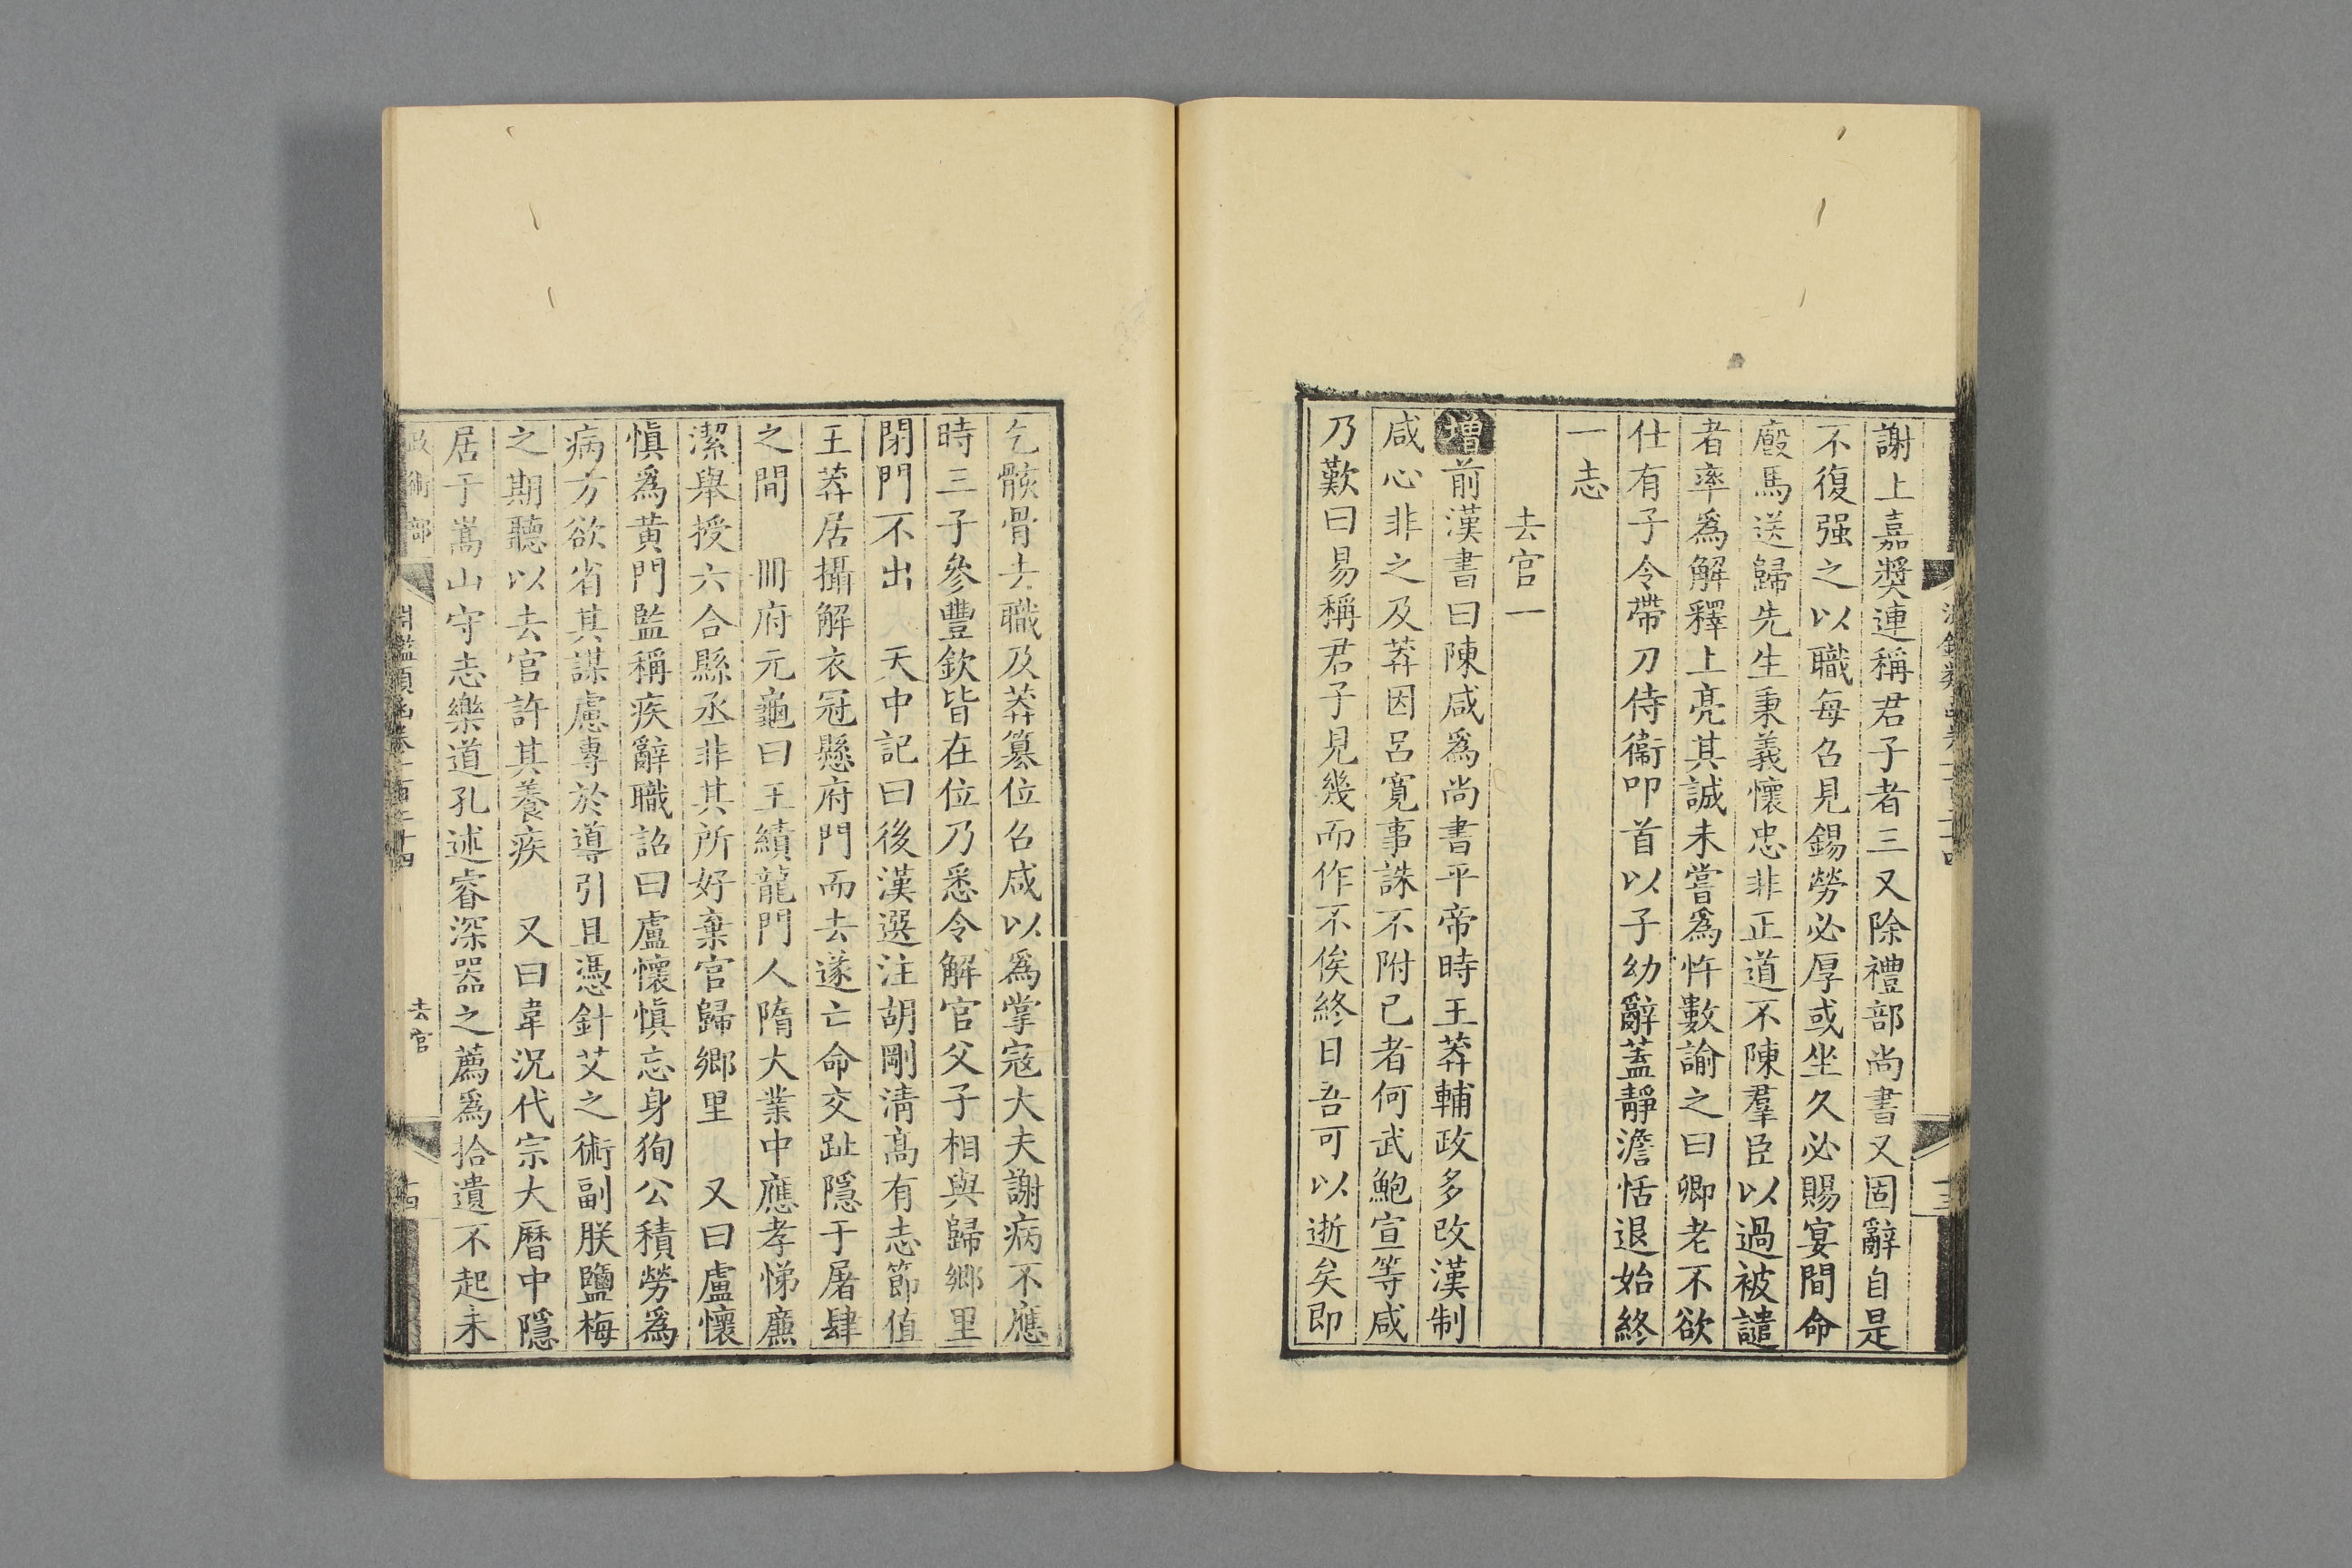 謝上嘉獎連稱君子者三又除禮部尚書又固辭自是
不復强之以職每召見錫勞必厚或坐久必賜宴間命
廏馬送歸先生秉義懷忠非正道不陳羣臣以過被譴
者率爲解釋上亮其誠未嘗爲忤數諭之曰卿老不欲
仕有子令帶刀侍衞叩首以子幼辭蓋靜澹恬退始終
一志
去官一
增前漢書曰陳咸爲尚書平帝時王莽輔政多改漢制
咸心非之及莽因呂寛事誅不附己者何武鮑宣等咸
乃歎曰易稱君子見幾而作不俟終日吾可以逝矣即
乞骸骨去職及莽簒位召咸以爲掌寇大夫謝病不應
時三子參豐欽皆在位乃悉令解官父子相與歸鄉里
閉門不出 天中記曰後漢選注胡剛淸高有志節值
王莽居攝解衣冠懸府門而去遂亡命交趾隱于屠肆
之間 冊府元龜曰王績龍門人隋大業中應孝悌廉
潔舉授六合縣丞非其所好棄官歸鄉里 又曰盧懷
愼爲黄門監稱疾辭職詔曰盧懷愼忘身狥公積勞爲
病方欲省其謀慮專於導引且憑針艾之術副朕鹽梅
之期聽以去官許其養疾 又曰韋況代宗大曆中隱
居于嵩山守志樂道孔述睿深器之薦爲拾遺不起未
政術部 淵鑑類函卷一百二十四 去官 十四